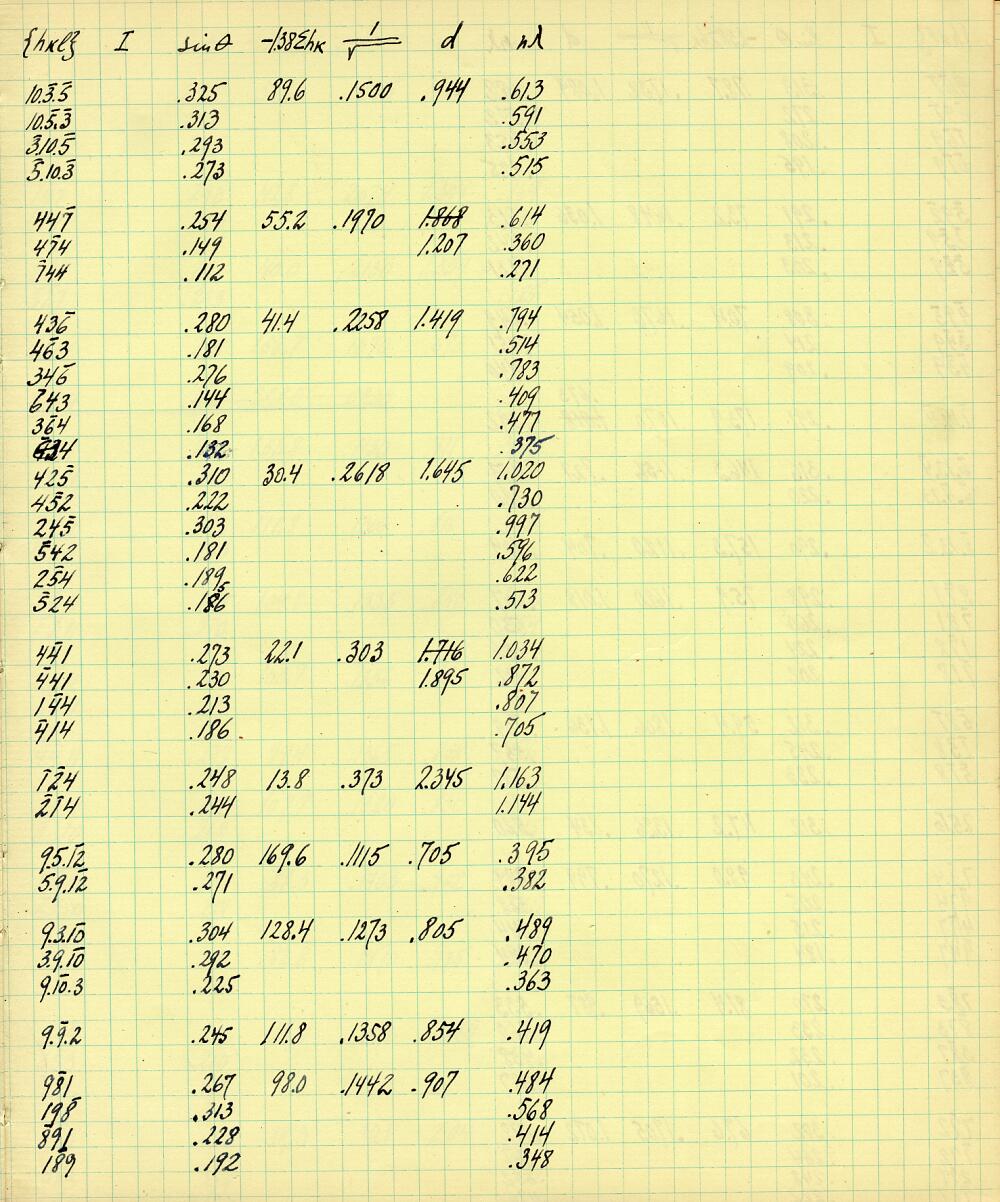 {hkl} I sinθ -.138Σhk 1/√ d nλ
10.3̅.5̅ .325 89.6 .1500 .944 .613
10.5̅.3̅ .313 .591
3̅.10.5̅ .293 .553
5̅.10.3̅ .273 .515
447̅ .254 55.2 .1970 ~~1.868~~ .614
47̅4 .149 1.207 .360
7̅44 .112 .271
436̅ .280 41.4 .2258 1.419 .794
46̅3 .181 .514
346̅ .276 .783
6̅43 .144 .409
36̅4 .168 .477
.132 .375
425̅ .310 30.4 .2618 1.645 1.020
45̅2 .222 .730
245̅ .303 .997
5̅42 .181 .596
25̅4 .189 .622
5̅24 .573
44̅1 .273 22.1 .303 ~~1.716~~ 1.034
4̅41 .230 1.895 .872
14̅4 .213 .807
4̅14 .186 .705
1̅2̅4 .248 13.8 .373 2.345 1.163
2̅1̅4 .244 1.144
9.5.1̅2̅ .280 169.6 .1115 .705 .395
5.9.1̅2̅ .271 .382
9.3.1̅0̅ .304 128.4 .1273 .805 .489
3.9.1̅0̅ .292 .470
9.1̅0̅.3 .225 .363
9.9̅.2 .245 111.8 .1358 .854 .419
98̅1 .267 98.0 .1442 .907 .484
198̅ .313 .568
8̅91 .228 .414
18̅9 .192 .348